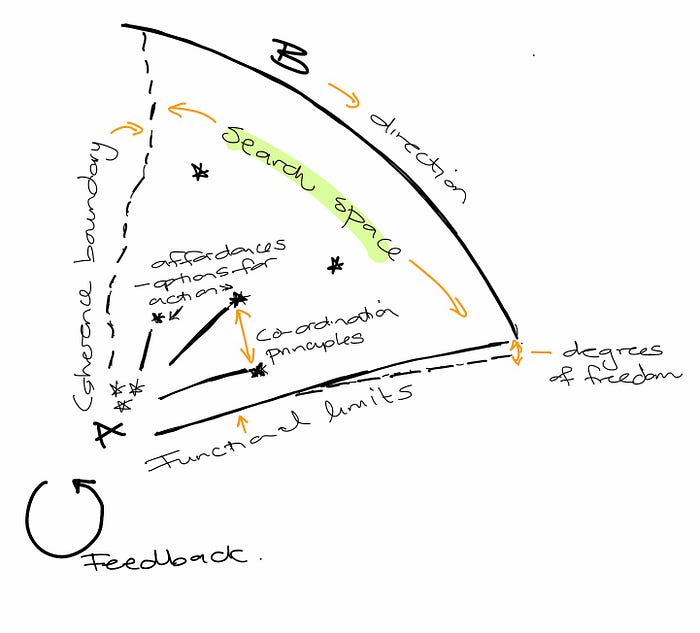 B
direction
Search space
Coherence boundary
affordances
- options for
action
Co-ordination
principles
degrees
of freedom
Functional limits
A
Feedback.